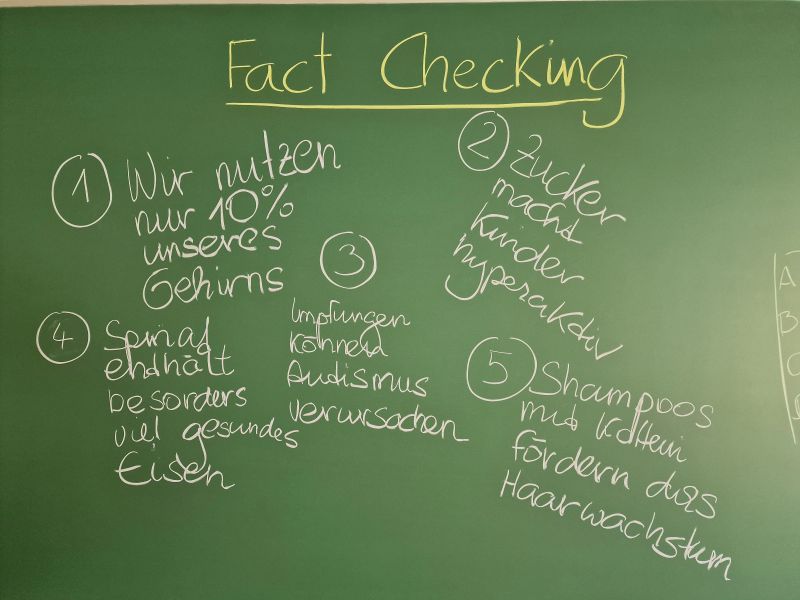 Fact Checking
1 Wir nutzen
nur 10%
unseres
Gehirns
2 Zucker
macht
Kinder
hyperaktiv
3
Impfungen
können
Autismus
verursachen
4 Spinat
enthält
besonders
viel gesundes
Eisen
5 Shampoos
mit Koffein
fördern das
Haarwachstum
A
B
C